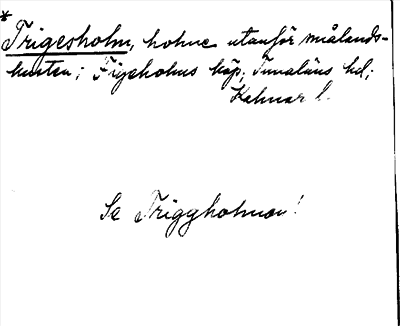 *
Trigesholm, holme utanför smålands-
kusten; Figeholms köp., Tunaläns hd;
Kalmar l.
Se Triggholmen!